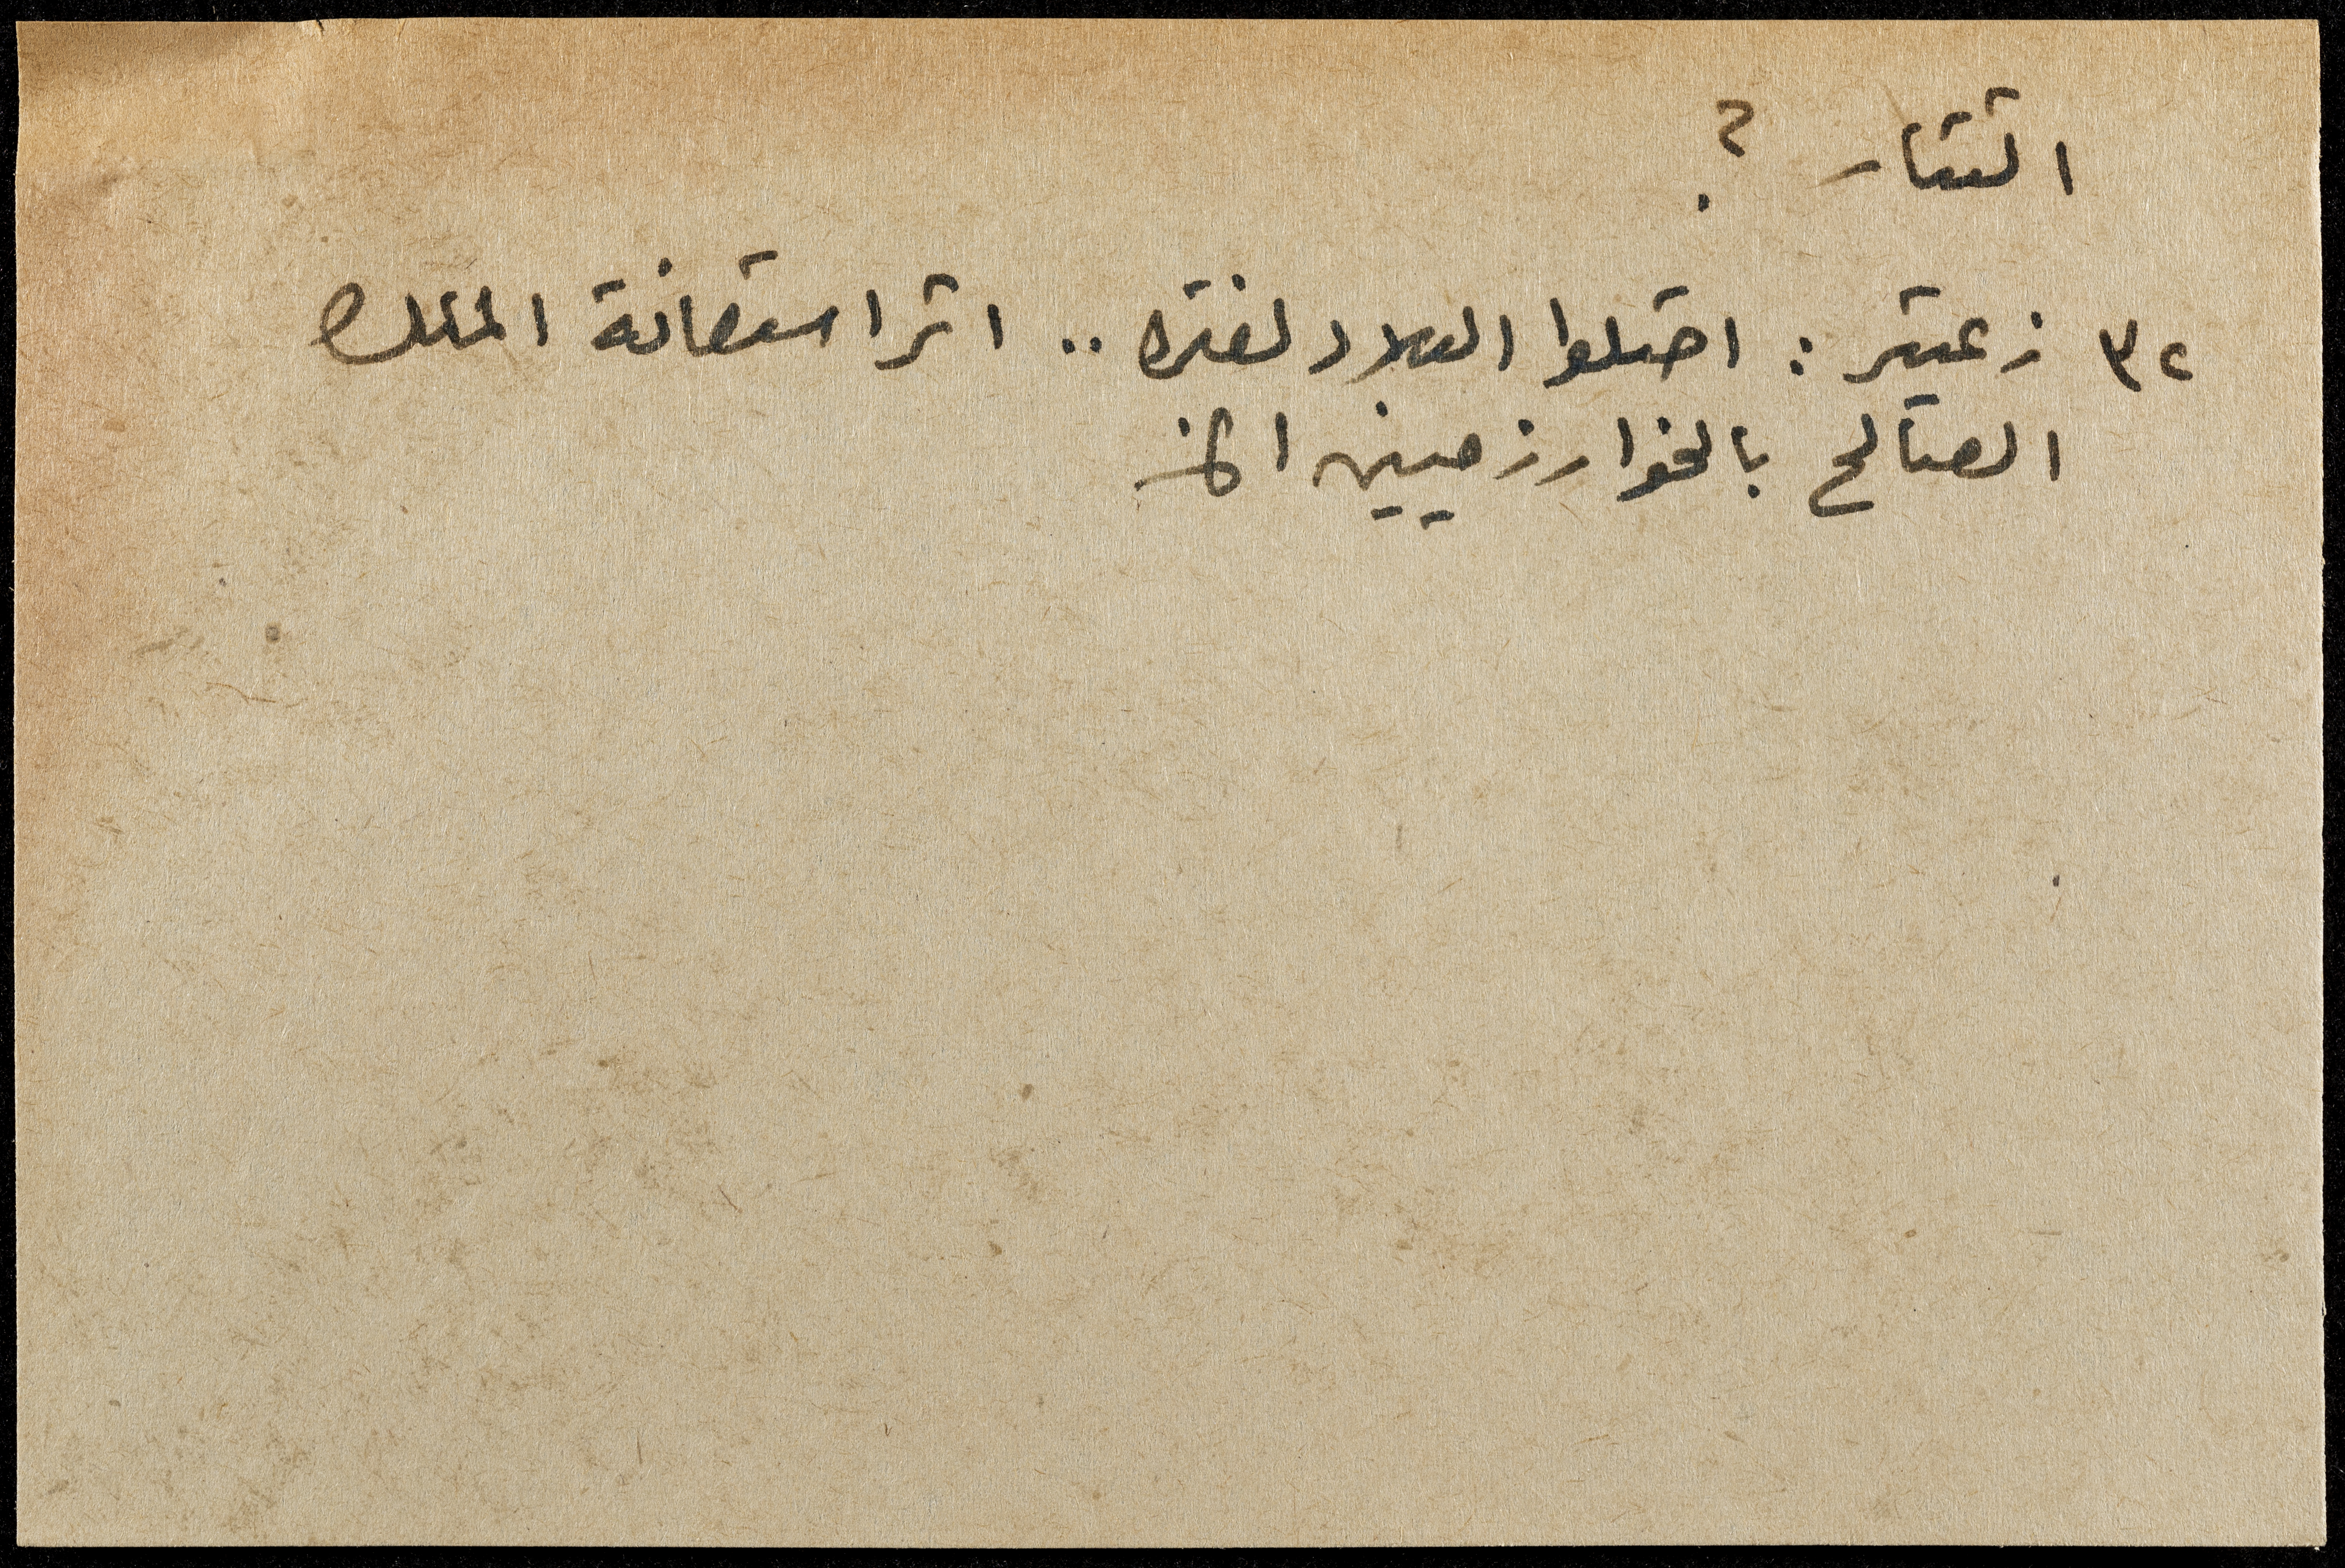 التتار ؟
٣٢ زعيتر : احتلوا البلاد لفتره .. اثر استعانة الملك
الصالح بالخوارزميين الخ